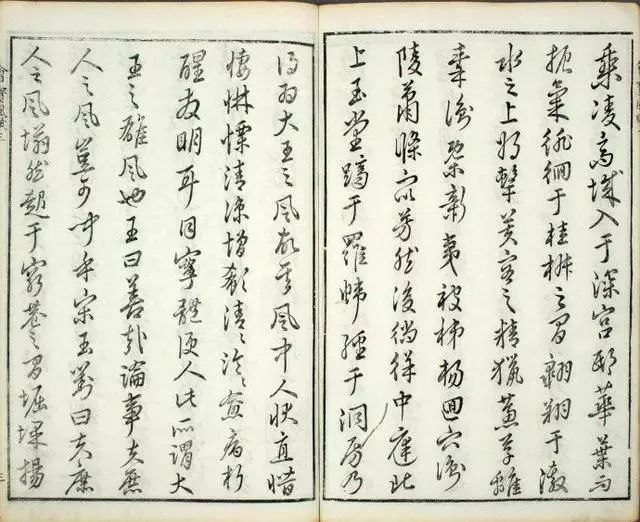 乘凌高城入于深宮邸華葉而
振氣徘徊于桂椒之間翱翔于激
水之上將擊芙容之精獵蕙草離
秦衡概新夷被稊楊迴穴衝
陵蕭條眾芳然後徜徉中庭北
上玉堂躋于羅帷經于洞房乃
得為大王之風故其風中人狀直憯
悽惏慄清涼增欷清〻泠〻愈病析
酲發明耳目寧體便人此所謂大
王之雄風也王曰善哉論事夫庶
人之風豈可聞乎宋玉對曰夫庶
人之風塌然起于窮巷之間堀堁揚